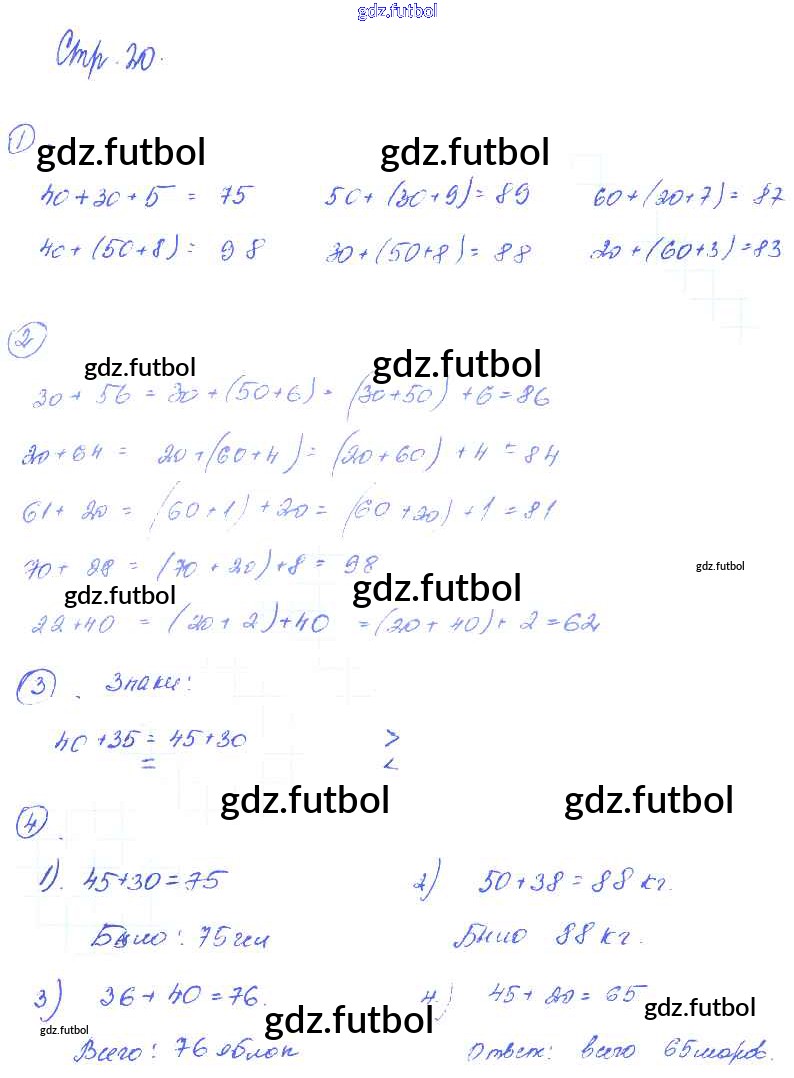 gdz.futbol
Стр. 20.
1
gdz.futbol gdz.futbol
40+30+5 = 75 50+(30+9)=89 60+(20+7)=87
40+(50+8)= 98 30+(50+8)=88 20+(60+3)=83
2
gdz.futbol gdz.futbol
30+56=30+(50+6)=(30+50)+6=86
20+64= 20+(60+4)=(20+60)+4=84
61+20=(60+1)+20=(60+20)+1=81
70+28=(70+20)+8=98
gdz.futbol
gdz.futbol gdz.futbol
22+40=(20+2)+40=(20+40)+2=62
3. Знаки:
40+35=45+30 >
= <
gdz.futbol gdz.futbol
4.
1). 45+30=75 2) 50+38=88 кг.
Было: 75 Было 88 кг.
3) 36+40=76. 4.) 45+20=65
gdz.futbol gdz.futbol gdz.futbol
Всего: 76 яблок Ответ: всего 65 шаров.